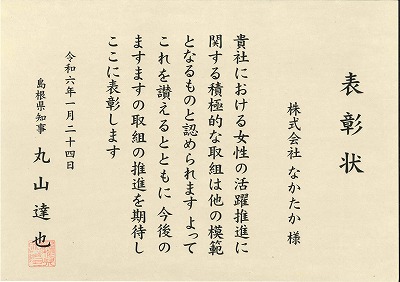 表彰状
株式会社 なかたか 様
貴社における女性の活躍推進に
関する積極的な取組は他の模範
となるものと認められます よって
これを讃えるとともに 今後の
ますますの取組の推進を期待し
ここに表彰します
令和六年一月二十四日
島根県知事 丸山達也